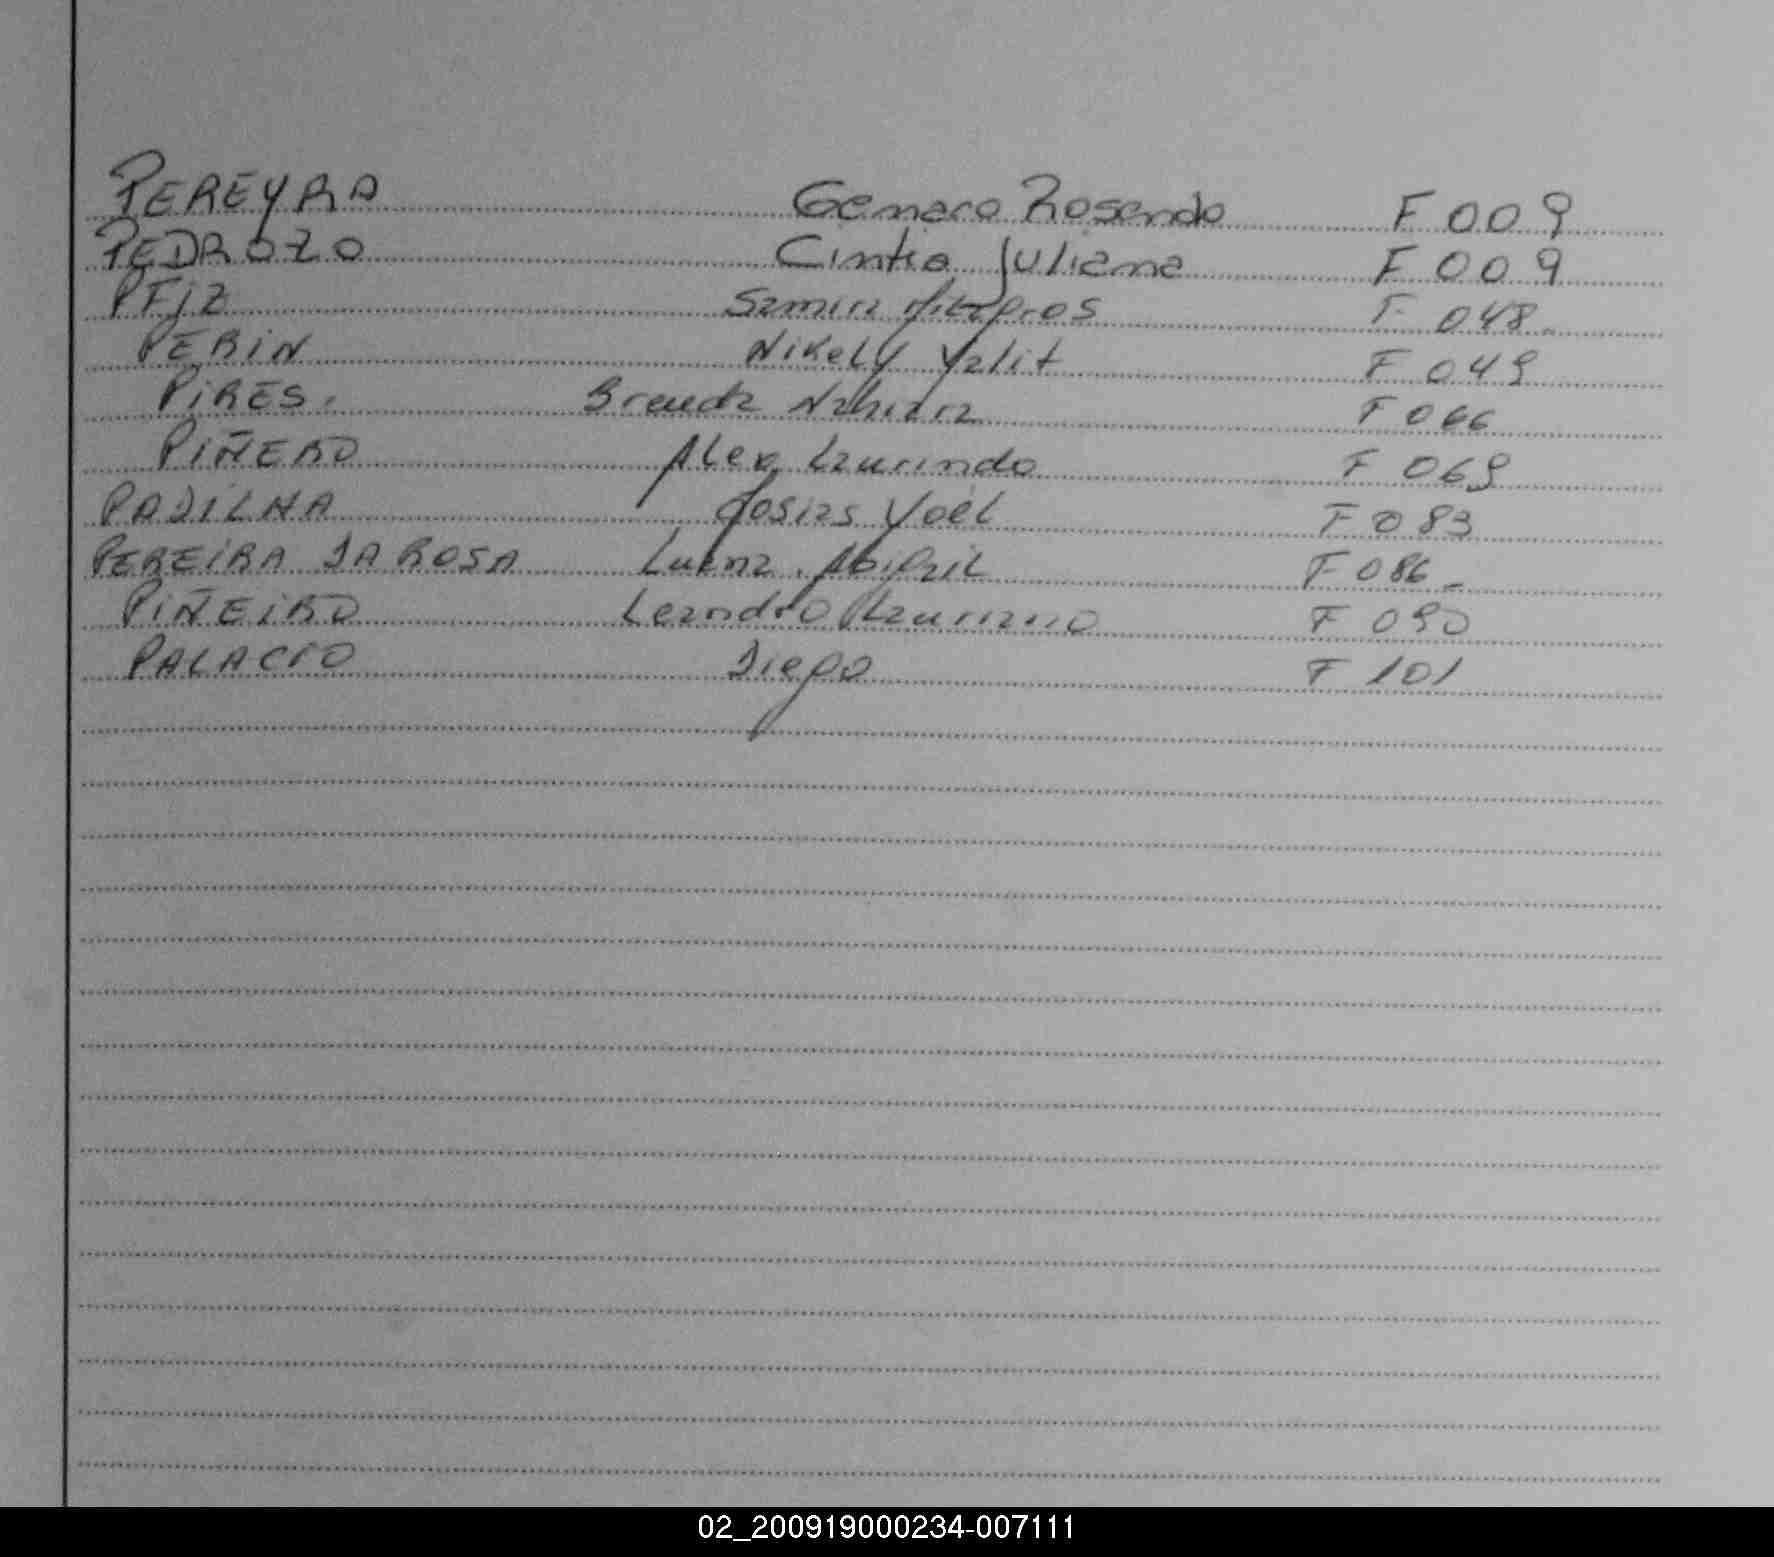 PEREYRA Genaro Rosendo F 009
PEDROZO Cintia Juliana F 009
Samira Milagros F 048
PERIN Nikely Yalit F 049
PIRES. Brenda Nahiara F 066
PIÑERO Alex Laurindo F 069
PADILHA Josias Yoel F 083
PEREIRA DA ROSA Luana Abigail F 086
PIÑEIRO Leandro Lauriano F 090
PALACIO Diego F 101
02_200919000234-007111